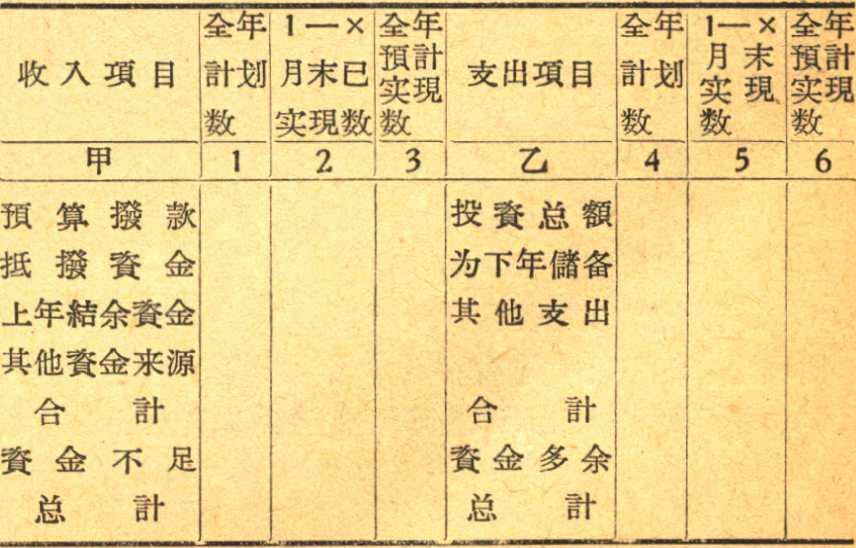 收入項目 全年計划数 1一×月末已实現数 全年預計实現数 支出項目 全年計划数 1一×月末实現数 全年預計实現数
甲 1 2 3 乙 4 5 6
預算撥款 投資总額
抵撥資金 为下年儲备
上年結余資金 其他支出
其他資金来源
合計 合計
資金不足 資金多余
总計 总計